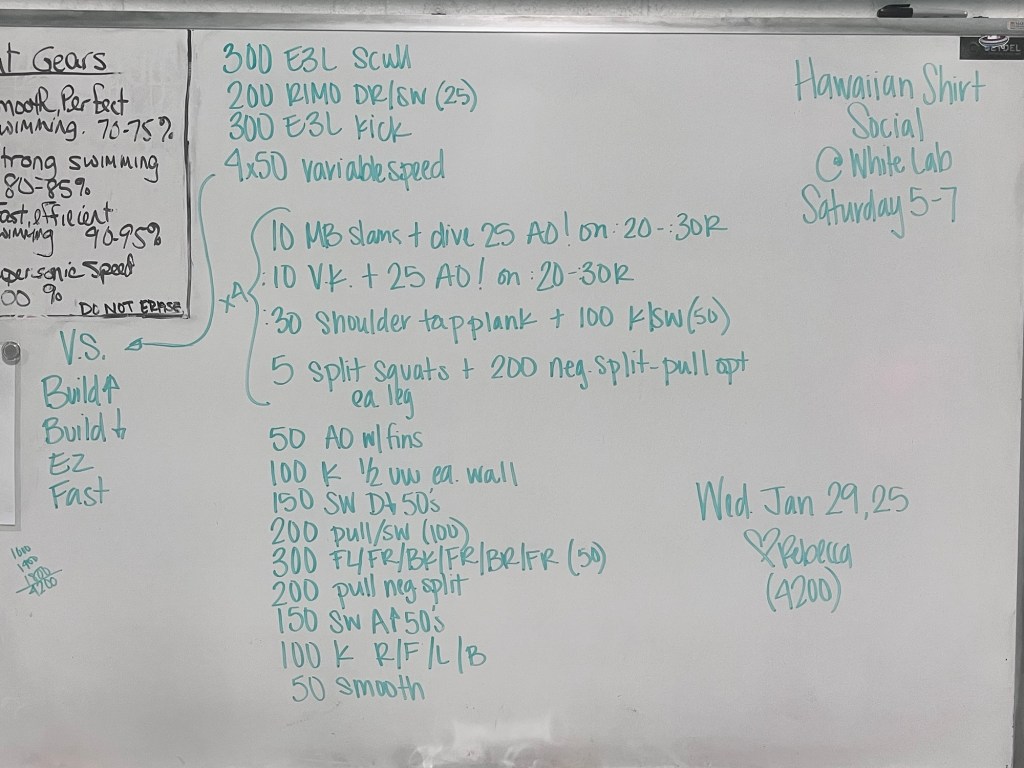 t Gears
mooth, Perfect
wimming. 70-75%
trong swimming
80-85%
ast, efficient
wimming 90-95%
personic speed
00 %
DO NOT ERASE
300 E3L Scull
200 RIMO DR/SW (25)
300 E3L Kick
4x50 variable speed
x4
10 MB slams + dive 25 AO! on :20-:30R
:10 V.K. + 25 AO! on :20-30R
:30 shoulder tap plank + 100 K/SW (50)
5 split squats + 200 neg. split-pull opt
ea leg
50 AO w/fins
100 K 1/2 uw ea. wall
150 SW D↓ 50's
200 pull/SW (100)
300 FL/FR/BK/FR/BR/FR (50)
200 pull neg split
150 SW A↑ 50's
100 K R/F/L/B
50 smooth
V.S.
Build↑
Build↓
EZ
Fast
4200
Hawaiian Shirt
Social
@ White Lab
Saturday 5-7
Wed. Jan 29, 25
♡ Rebecca
(4200)